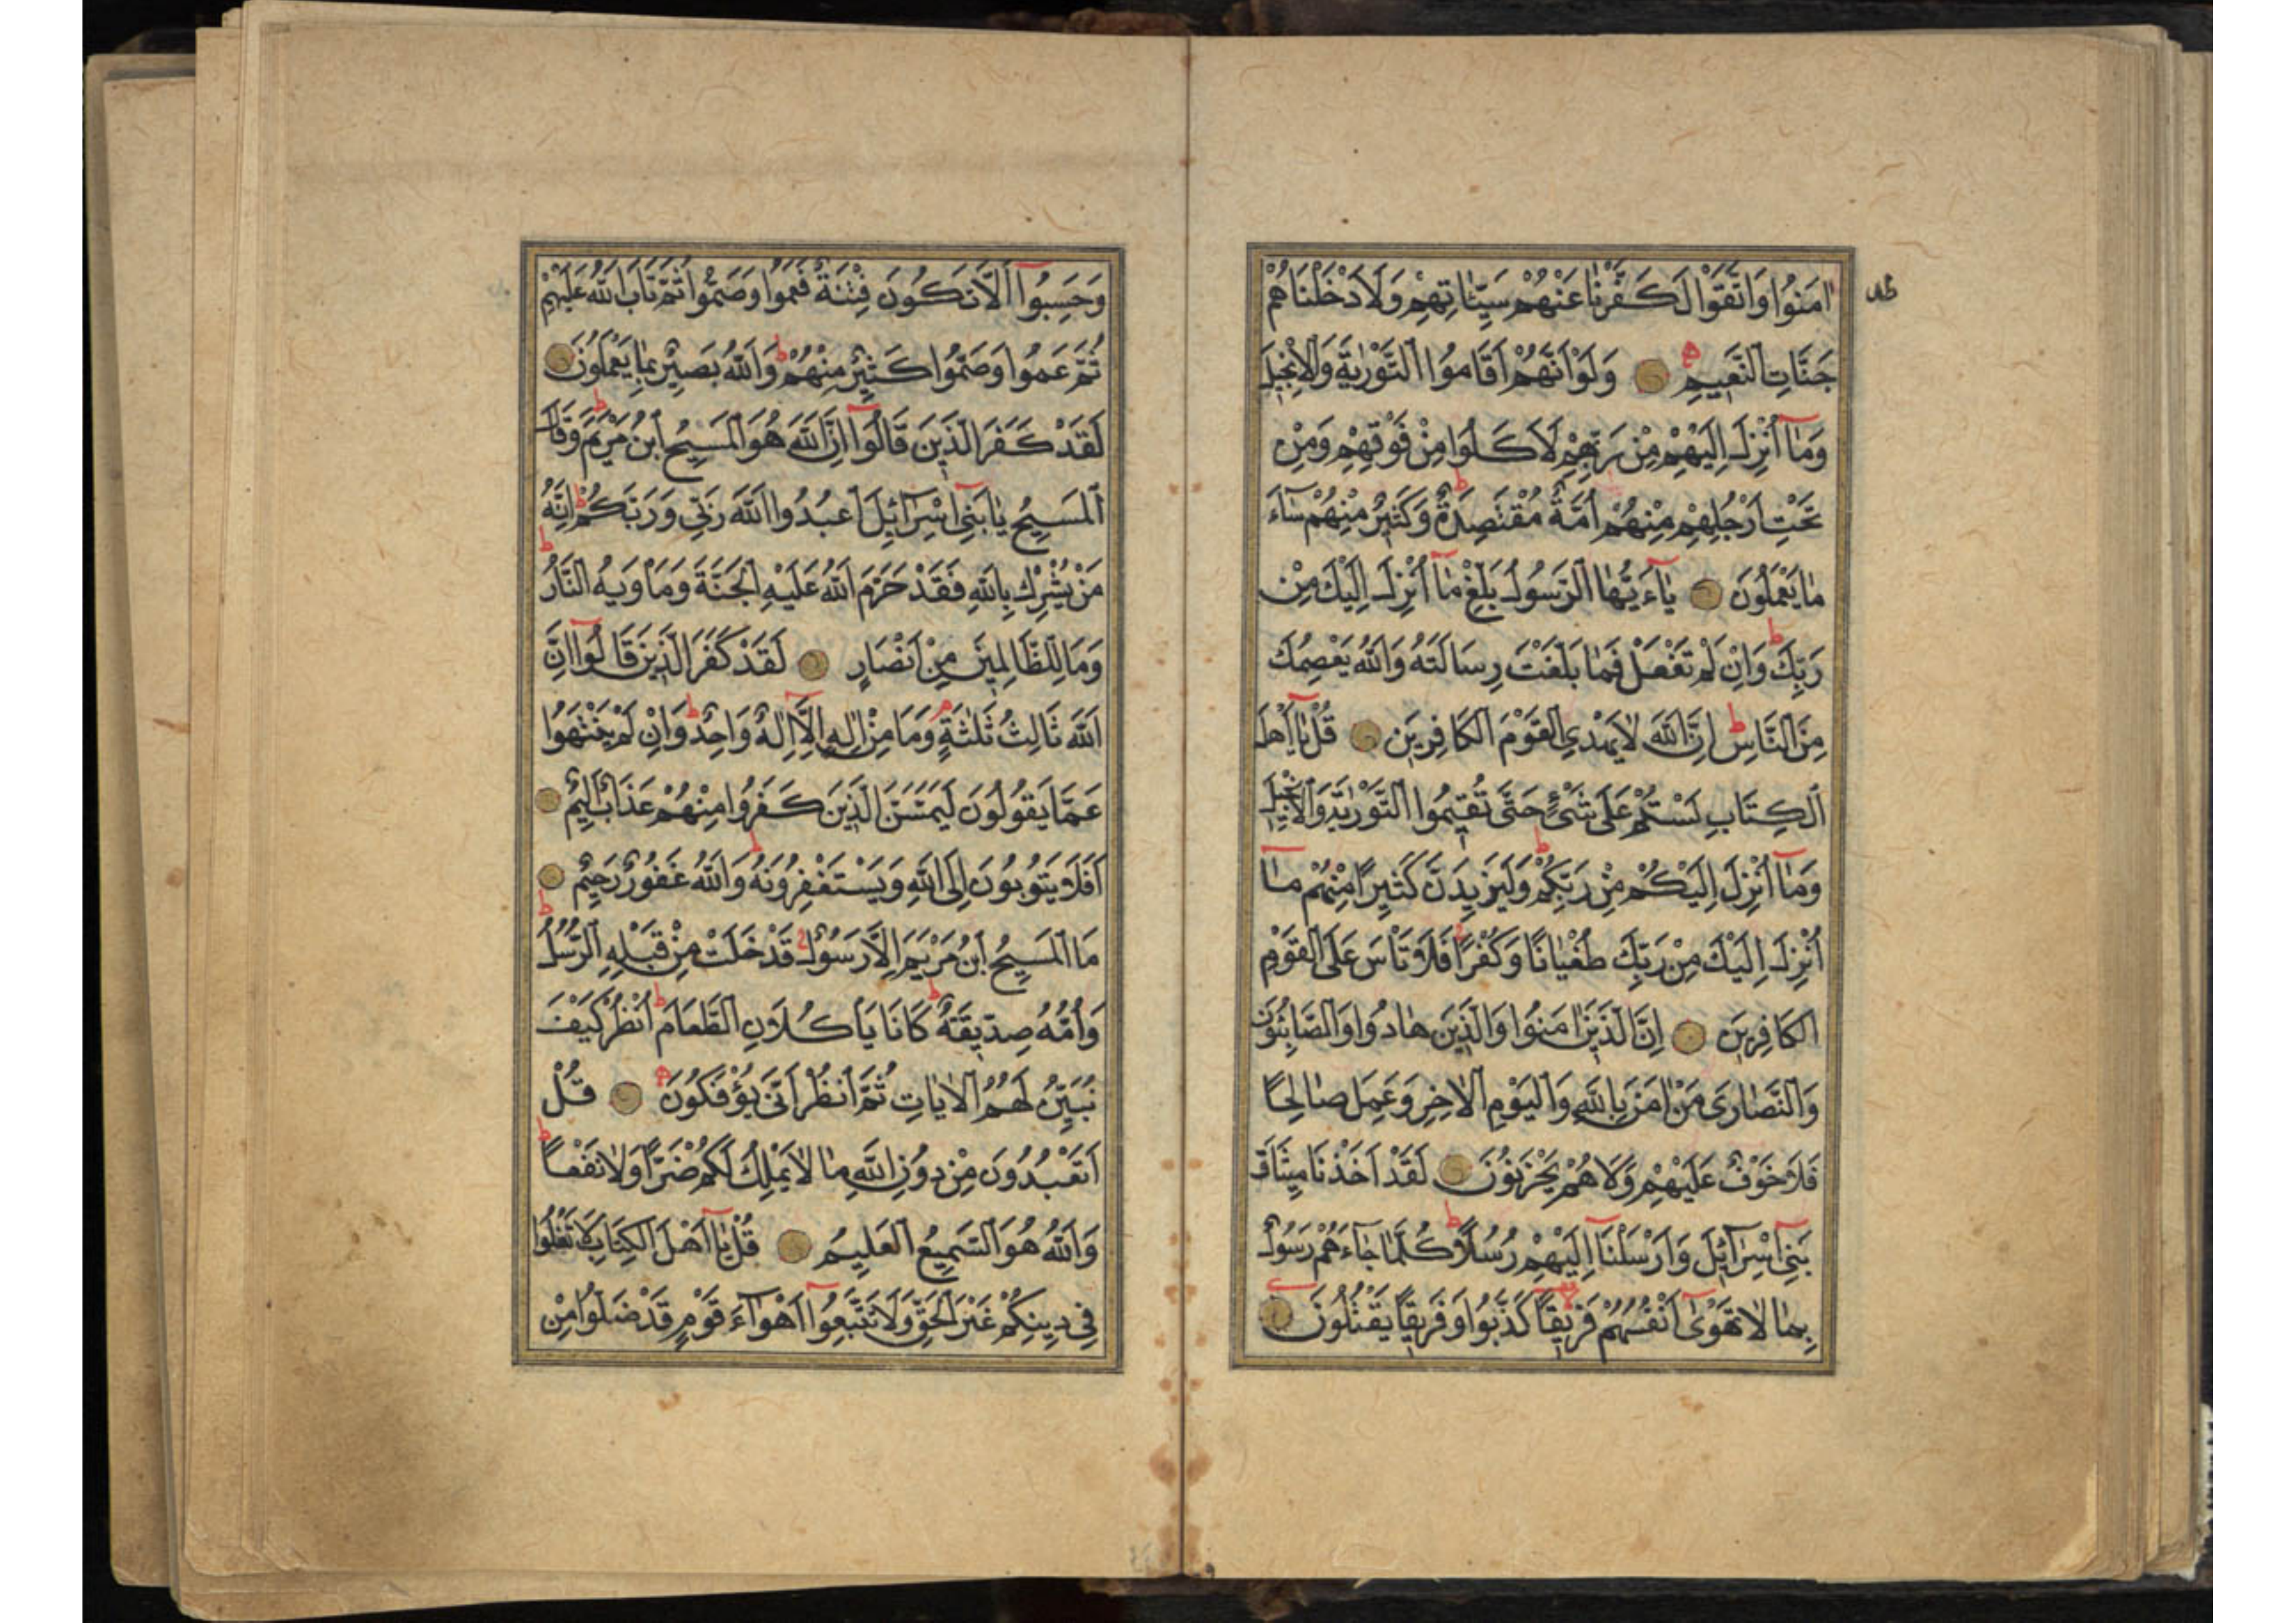 اٰمَنُوا وَاتَّقَوْا لَكَفَّرْنَا عَنْهُمْ سَيِّئَاتِهِمْ وَلَاَدْخَلْنَاهُمْ
جَنَّاتِ النَّعِيمِ وَلَوْ اَنَّهُمْ اَقَامُوا التَّوْرٰيةَ وَالْاِنْجِيلَ
وَمَٓا اُنْزِلَ اِلَيْهِمْ مِنْ رَبِّهِمْ لَاَكَلُوا مِنْ فَوْقِهِمْ وَمِنْ
تَحْتِ اَرْجُلِهِمْ مِنْهُمْ اُمَّةٌ مُقْتَصِدَةٌ وَكَثِيرٌ مِنْهُمْ سَٓاءَ
مَا يَعْمَلُونَ يَٓا ءَيُّهَا الرَّسُولُ بَلِّغْ مَٓا اُنْزِلَ اِلَيْكَ مِنْ
رَبِّكَ وَاِنْ لَمْ تَفْعَلْ فَمَا بَلَّغْتَ رِسَالَتَهُ وَاللّٰهُ يَعْصِمُكَ
مِنَ النَّاسِ اِنَّ اللّٰهَ لَا يَهْدِي الْقَوْمَ الْكَافِرِينَ قُلْ يَٓا اَهْلَ
الْكِتَابِ لَسْتُمْ عَلٰى شَيْءٍ حَتّٰى تُقِيمُوا التَّوْرٰيةَ وَالْاِنْجِيلَ
وَمَٓا اُنْزِلَ اِلَيْكُمْ مِنْ رَبِّكُمْ وَلَيَزِيدَنَّ كَثِيرًا مِنْهُمْ مَٓا
اُنْزِلَ اِلَيْكَ مِنْ رَبِّكَ طُغْيَانًا وَكُفْرًا فَلَا تَاْسَ عَلَى الْقَوْمِ
الْكَافِرِينَ اِنَّ الَّذِينَ اٰمَنُوا وَالَّذِينَ هَادُوا وَالصَّابِئُونَ
وَالنَّصَارٰى مَنْ اٰمَنَ بِاللّٰهِ وَالْيَوْمِ الْاٰخِرِ وَعَمِلَ صَالِحًا
فَلَا خَوْفٌ عَلَيْهِمْ وَلَا هُمْ يَحْزَنُونَ لَقَدْ اَخَذْنَا مِيثَاقَ
بَنِٓي اِسْرَٓائِلَ وَاَرْسَلْنَٓا اِلَيْهِمْ رُسُلًا كُلَّمَا جَٓاءَهُمْ رَسُولٌ
بِمَا لَا تَهْوٰٓى اَنْفُسُهُمْ فَرِيقًا كَذَّبُوا وَفَرِيقًا يَقْتُلُونَ
وَحَسِبُٓوا اَلَّا تَكُونَ فِتْنَةٌ فَعَمُوا وَصَمُّوا ثُمَّ تَابَ اللّٰهُ عَلَيْهِمْ
ثُمَّ عَمُوا وَصَمُّوا كَثِيرٌ مِنْهُمْ وَاللّٰهُ بَصِيرٌ بِمَا يَعْمَلُونَ
لَقَدْ كَفَرَ الَّذِينَ قَالُٓوا اِنَّ اللّٰهَ هُوَ الْمَسِيحُ ابْنُ مَرْيَمَ وَقَالَ
الْمَسِيحُ يَا بَنِٓي اِسْرَٓائِلَ اعْبُدُوا اللّٰهَ رَبِّي وَرَبَّكُمْ اِنَّهُ
مَنْ يُشْرِكْ بِاللّٰهِ فَقَدْ حَرَّمَ اللّٰهُ عَلَيْهِ الْجَنَّةَ وَمَاْوٰيهُ النَّارُ
وَمَا لِلظَّالِمِينَ مِنْ اَنْصَارٍ لَقَدْ كَفَرَ الَّذِينَ قَالُٓوا اِنَّ
اللّٰهَ ثَالِثُ ثَلٰثَةٍ وَمَا مِنْ اِلٰهٍ اِلَّٓا اِلٰهٌ وَاحِدٌ وَاِنْ لَمْ يَنْتَهُوا
عَمَّا يَقُولُونَ لَيَمَسَّنَّ الَّذِينَ كَفَرُوا مِنْهُمْ عَذَابٌ اَلِيمٌ
اَفَلَا يَتُوبُونَ اِلَى اللّٰهِ وَيَسْتَغْفِرُونَهُ وَاللّٰهُ غَفُورٌ رَحِيمٌ
مَا الْمَسِيحُ ابْنُ مَرْيَمَ اِلَّا رَسُولٌ قَدْ خَلَتْ مِنْ قَبْلِهِ الرُّسُلُ
وَاُمُّهُ صِدِّيقَةٌ كَانَا يَاْكُلَانِ الطَّعَامَ اُنْظُرْ كَيْفَ
نُبَيِّنُ لَهُمُ الْاٰيَاتِ ثُمَّ انْظُرْ اَنّٰى يُؤْفَكُونَ قُلْ
اَتَعْبُدُونَ مِنْ دُونِ اللّٰهِ مَا لَا يَمْلِكُ لَكُمْ ضَرًّا وَلَا نَفْعًا
وَاللّٰهُ هُوَ السَّمِيعُ الْعَلِيمُ قُلْ يَٓا اَهْلَ الْكِتَابِ لَا تَغْلُوا
فِي دِينِكُمْ غَيْرَ الْحَقِّ وَلَا تَتَّبِعُٓوا اَهْوَٓاءَ قَوْمٍ قَدْ ضَلُّوا مِنْ